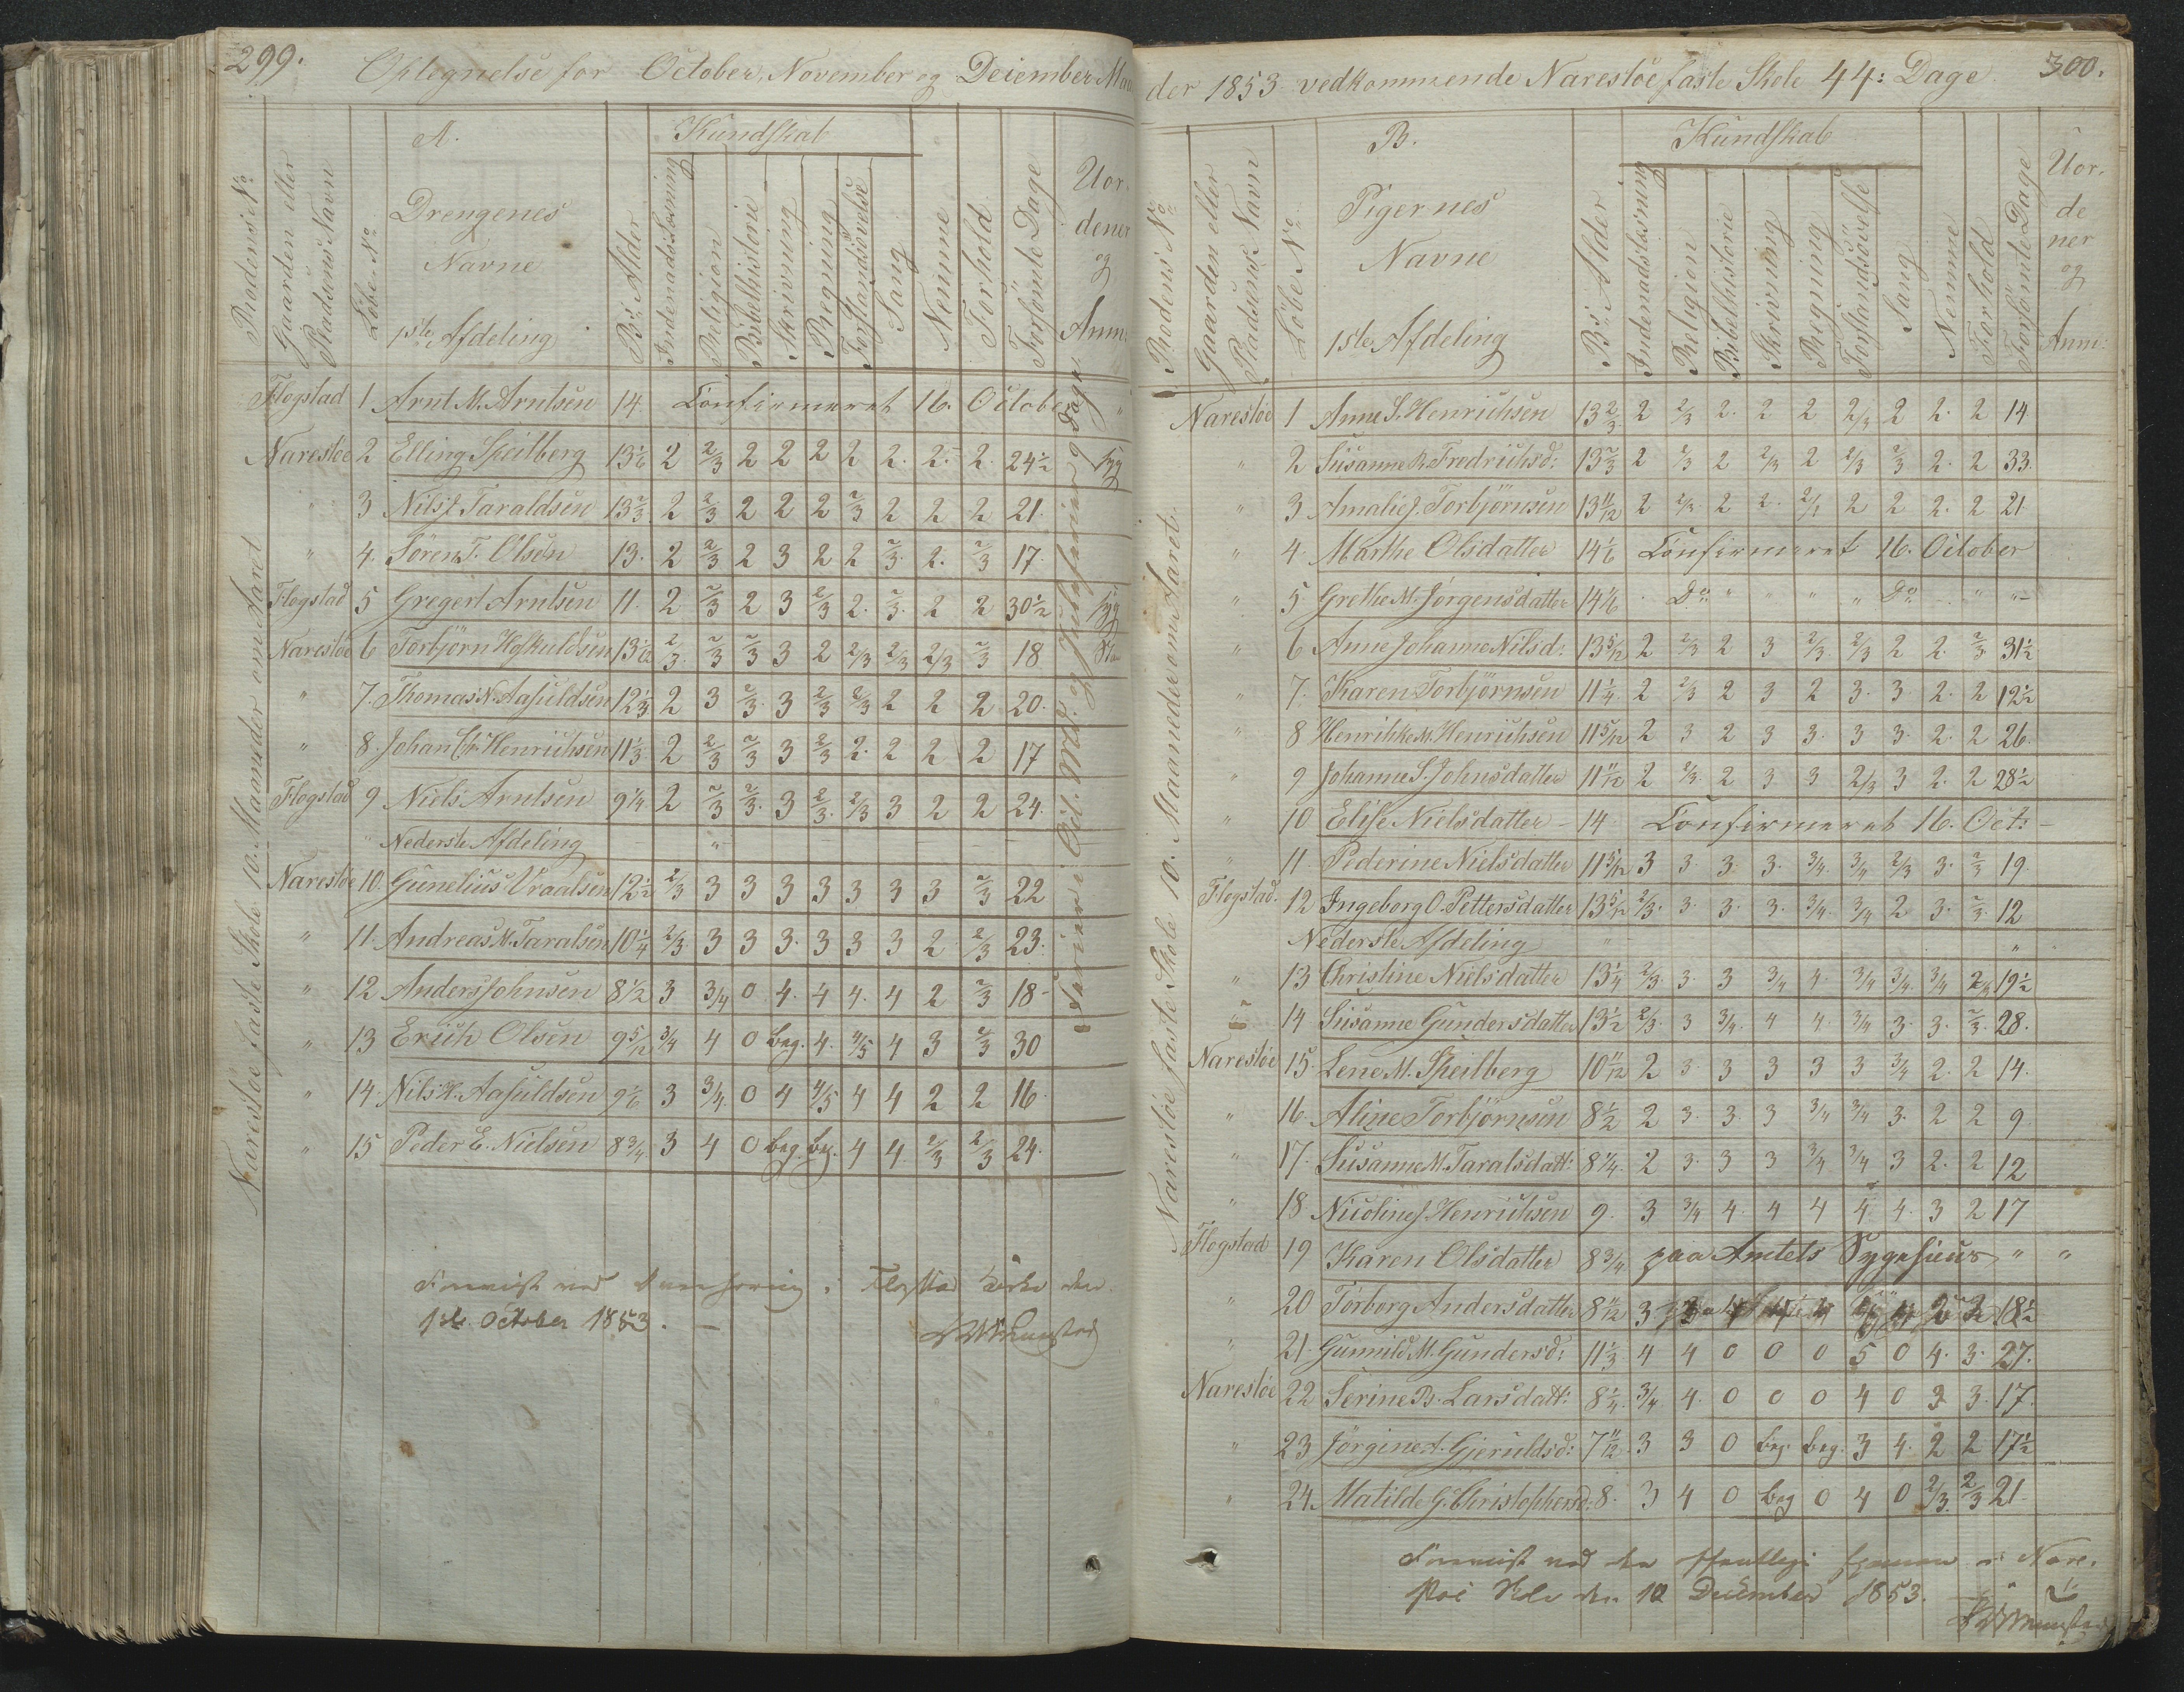 299.
Optegnelse for October, November og December Maa
A.
Kundskab
Rodens No
Gaarden eller Pladsens Navn
Løbe No
Drengenes Navne
1ste Afdeling
Bs Alder
Indenadslæsning
Religion
Bibelhistorie
Skrivning
Regning
Forstandsövelse
Sang
Nemme
Forhold
Forsömte Dage
Uordener og Anm.
Narestöe faste Skole 10. Maaneder om Aaret
Flogstad 1 Arnt M. Arntsen 14 Confirmeret 16. October "
Narestöe 2 Elling Speilberg 13 1/6 2 2/3 2 2 2 2 2. 2. 2. 24 1/2 syg
" 3 Nils J. Taraldsen 13 2/3 2 2/3 2 2 2 2/3 2 2 2 21.
" 4. Sören T. Olsen 13. 2 2/3 2 3 2 2 2/3. 2. 2/3 17.
Flogstad 5 Gregert Arntsen 11. 2 2/3 2 3 2/3 2. 2/3. 2 2 30 1/2 syg
Narestöe 6 Torbjörn Hofkuldsen 13 1/12 2/3. 2/3 2/3 3 2 2/3 2/3 2/3 2/3 18
" 7. Thomas N. Aasuldsen 12 1/3 2 3 2/3. 3 2/3 2/3 2 2 2 20.
" 8. Johan Chr. Henrichsen 11 1/3 2 2/3 2/3 3 2/3 2. 2 2 2 17
Flogstad 9 Niels Arntsen 9 1/4 2 2/3 2/3. 3 2/3. 2/3 3 2 2 24.
Nederste Afdeling
Narestöe 10. Gunelius Vraalsen 12 1/2 2/3 3 3 3 3 3 3 3 2/3 22
" 11. Andreas M. Taralsen 10 1/4 2/3. 3 3 3. 3 3 3 2 2/3 23.
" 12 Anders Johnsen 8 1/2 3 3/4 0 4. 4 4. 4 2 2/3 18
" 13 Erich Olsen 9 5/12 3/4 4 0 beg. 4. 4/5 4 3 2/3 30
" 14. Nils H. Aasuldsen 9 1/6 3 3/4 0 4 4/5 4 4 2 2 16.
" 15 Peder E. Nielsen 8 3/4. 3 4 0 beg. beg. 4 4 2/3 2/3 24.
1ste October 1853.
der 1853 vedkommende Narestöe faste Skole 44: Dage
300.
B.
Kundskab
Rodens No
Gaarden eller Pladsens Navn
Löbe No
Pigernes Navne
1ste Afdeling
Bs Alder
Indenadslæsning
Religion
Bibelhistorie
Skrivning
Regning
Forstandsövelse
Sang
Nemme
Forhold
Forsömte Dage
Uordener og Anm:
Narestöe faste Skole 10. Maaneder om Aaret.
Narestöe 1 Anne S. Henrichsen 13 2/3 2 2/3 2. 2 2 2/3 2 2. 2 14.
" 2 Susanne R. Fredrichsd: 13 2/3 2 2/3 2 2/3 2 2/3 2/3 2. 2 33.
" 3 Amalie J. Torbjörnsen 13 11/12 2 2/3. 2 2. 2/3 2 2 2. 2 21
" 4. Marthe Olsdatter 14 1/6 Confirmeret 16. October
" 5 Grethe M. Jörgensdatter 14 1/6 Do " " " " Do " "
" 6 Anne Johanne Nilsd: 13 5/12 2 2/3 2 3 2/3. 2/3 2 2. 2/3 31 1/2
" 7. Karen Torbjörnsen 11 1/4 2 2/3 2 3 2 3. 3. 2. 2 12 1/2
" 8 Henrikke M. Henrichsen 11 5/12 2 3 2 3 3. 3 3. 2. 2 26.
" 9 Johanne S. Johnsdatter 11 11/12 2 2/3. 2 3 3 2/3 3 2. 2 28 1/2
" 10 Elise Nielsdatter 14 Confirmeret 16. Oct:
" 11. Pederine Nielsdatter 11 5/12 3 3. 3. 3. 3/4. 3/4 2/3 3. 2/3 19.
Flogstad. 12 Ingeborg O. Pettersdatter 13 5/12 2/3. 3. 3. 3. 3/4. 3/4 2 3. 2/3. 12
Nederste Afdeling
" 13 Christine Nielsdatter 13 1/4 2/3. 3. 3 3/4 4. 3/4 3/4. 3/4 2/3 19 1/2
" 14 Susanne Gundersdatter 13 1/2 2/3. 3 3/4. 4 4. 3/4 3. 3. 2/3. 28.
Narestöe 15. Lene M. Speilberg 10 11/12 2 3. 3 3 3 3 3/4 2. 2 14.
" 16. Aline Torbjörnsen 8 1/2 2 3. 3. 3 3/4 3/4 3. 2 2 9
" 17. Susanne M. Taralsdatt: 8 1/4. 2 3. 3 3 3/4 3/4 3 2. 2 12
" 18 Nicoline J. Henrichsen 9. 3 3/4 4. 4 4 4 4. 3 2 17
Flogstad 19 Karen Olsdatter 8 3/4 paa Amtets Sygehuus " "
" 20 Torborg Andersdatter 8 11/12 3 2 2 18 1/2
" 21. Gunnild M. Gundersd: 11 1/3. 4 4 0 0 0 5 0 4. 3. 27.
Narestöe 22 Serine B. Larsdatt: 8 1/4. 3/4 4. 0 0 0 4 0 3 3. 17.
" 23 Jörgine A. Gjeruldsd: 7 11/12. 3 3 0 beg. beg. 3 4. 2 2 17 1/2
" 24. Matilde G. Christophersd: 8. 3 4 0 beg 0 4 0 2/3. 2/3 21.
Foreviist ved den offentlige Examen i Nare-
stöe Skole den 10 December 1853.